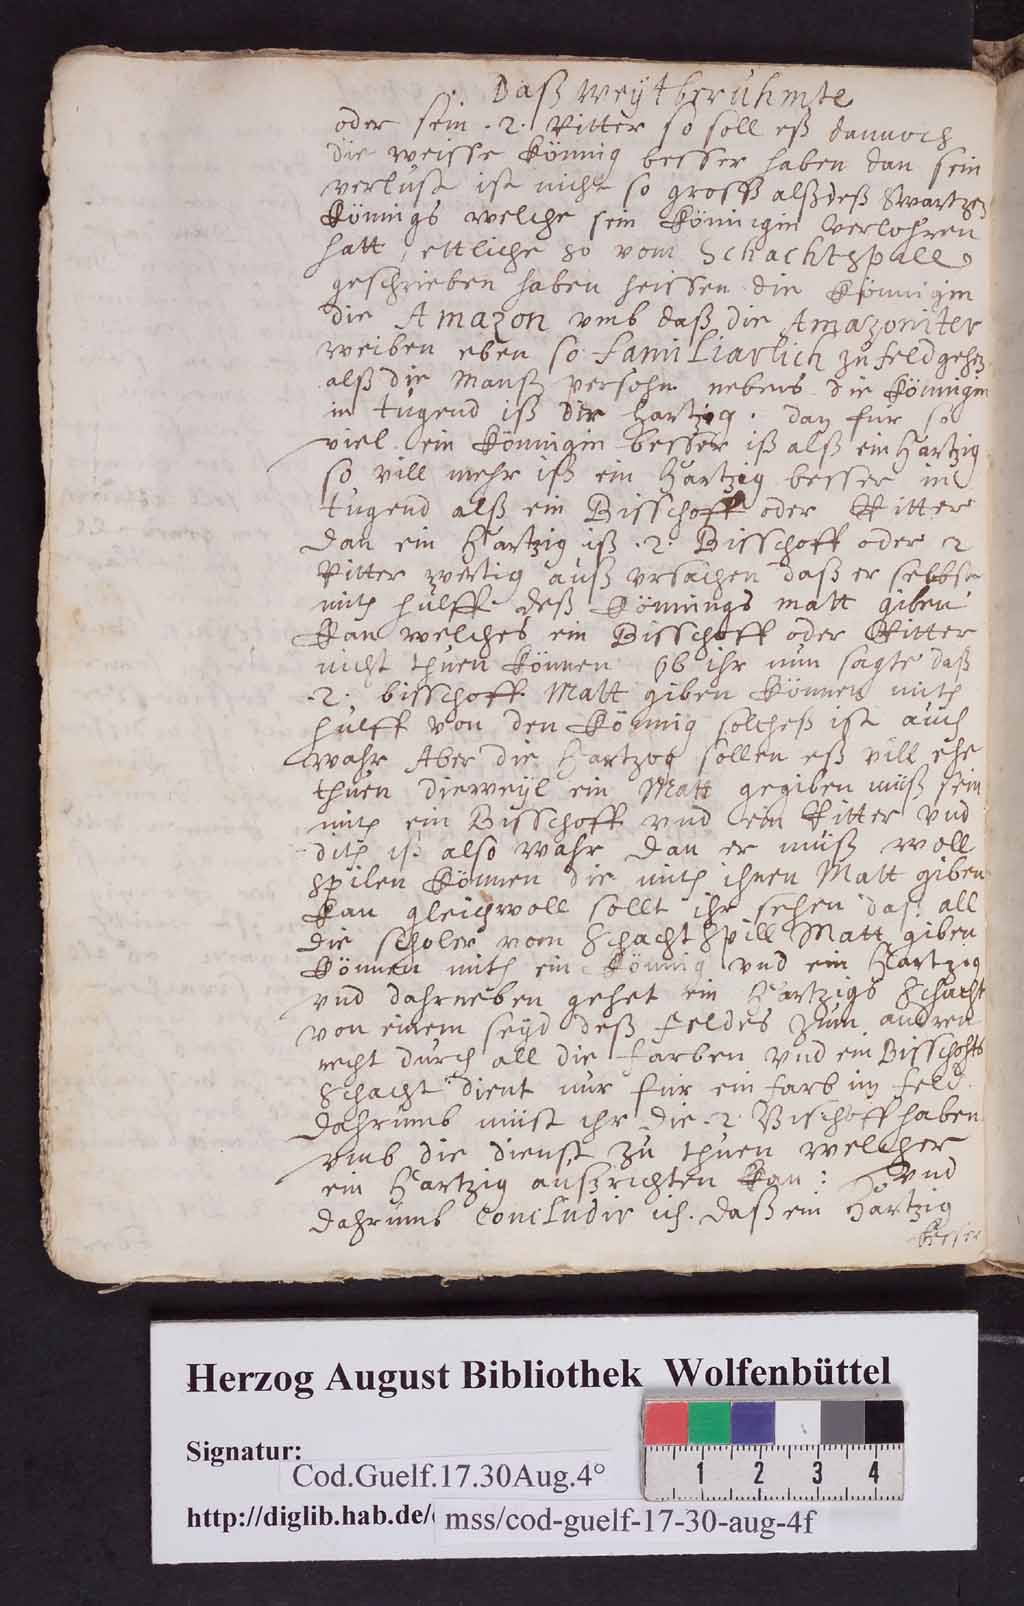 Daß weÿtberuhmte
oder sein .2. Ritter so soll eß dannoch
die weisse Könnig besser haben dan sein
verlust ist nicht so grosß alß deß Swartzen
Könnigs welche sein Könnigin verlohren
hatt, ettliche so vom Schachtspall
geschrieben haben heissen die Könnigin
die Amazon vmb daß die Amazoniter
weiben eben so familiarlich zu feld gehen
alß die Manß persohn nebens die Könnigin
in tugend iß die Hartzog. dan für so
viel ein Könnigin besser iß alß ein Hartzig
so vill mehr iß ein Hartzig besser in
tugend alß ein Bisschoff oder Ritter
Dan ein Hartzig iß .2. Bisschoff oder 2
Ritter wertig auß vrsachen daß er selbst
mitt hulff deß Könnings matt giben
Kan welches ein Bisschoff oder Ritter
nicht thuen Können Ob ihr nun sagte daß
.2. bisschoff Matt giben Können mitt
hulff von den Könnig solcheß ist auch
wahr Aber die Hartzog sollen eß vill ehe
thuen dieweÿl ein Matt gegiben müß sein
mitt ein Bisschoff vnd ein Ritter vnd
ditt iß also wahr Dan er müß woll
spilen Können die mitt ihnen Matt giben
Kan gleichwoll sollt ihr sehen das all
die scholer vom Schacht Spill Matt giben
Können mitt ein Könnig vnd ein Hartzog
vnd dahrneben gehet ein Hartzigs Schacht
von einem seÿd deß feldes zum andren
recht durch all die farben vnd ein Bisschofs
Schacht dient nur für ein farb im feld
Dahrumb müst ihr die .2. Bischoff haben
vmb die dienst zu thuen welcher
ein Hartzig außrichten Kan: vnd
dahrumb Concludir ich. daß ein Hartzig
besser
Herzog August Bibliothek Wolfenbüttel
Signatur:
Cod.Guelf.17.30Aug.4°
http://diglib.hab.de/ mss/cod-guelf-17-30-aug-4f
1 2 3 4